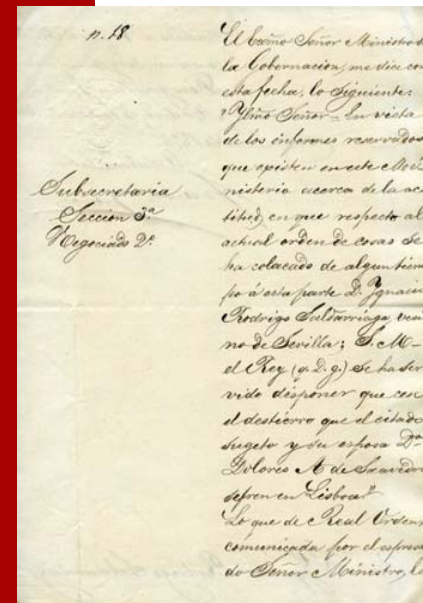 n. 18
Subsecretaria
Seccion 3ª
Negociado 2º
El Excmo Señor Ministro d
la Gobernacion, me dice con
esta fecha, lo siguiente:
"Ylmo Señor = En vista
de los informes reservados
que existen en este Mi
nisterio acerca de la ac
titud en que respecto al
actual orden de cosas se
ha colocado de algun tiem
po á esta parte D. Ygnacio
Rodrigo Saldarriaga, veci
no de Sevilla; S. M.
el Rey (q. D. g.) se ha ser
vido disponer que cese
el destierro que el citado
sugeto y su esposa Dª
Dolores A de Saavedra
sufren en Lisboa"
Lo que de Real Orden
comunicada por el espresa
do Señor Ministro, lo